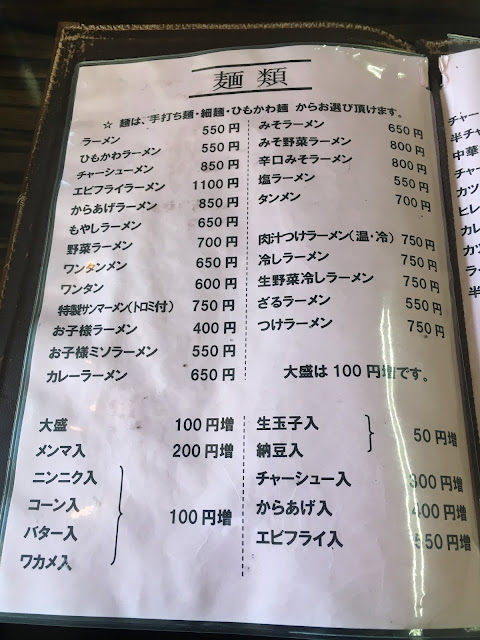 麺類
☆ 麺は、手打ち麺・細麺・ひもかわ麺 からお選び頂けます。
ラーメン 550円
ひもかわラーメン 550円
チャーシューメン 850円
エビフライラーメン 1100円
からあげラーメン 850円
もやしラーメン 650円
野菜ラーメン 700円
ワンタンメン 650円
ワンタン 600円
特製サンマーメン(トロミ付) 750円
お子様ラーメン 400円
お子様ミソラーメン 550円
カレーラーメン 650円
みそラーメン 650円
みそ野菜ラーメン 800円
辛口みそラーメン 800円
塩ラーメン 550円
タンメン 700円
肉汁つけラーメン(温・冷) 750円
冷しラーメン 750円
生野菜冷しラーメン 750円
ざるラーメン 550円
つけラーメン 750円
大盛は 100円増です。
大盛 100円増
メンマ入 200円増
ニンニク入
コーン入
バター入
ワカメ入
100円増
生玉子入
納豆入
50円増
チャーシュー入 300円増
からあげ入 400円増
エビフライ入 550円増
チャー
半チャ
中華
チャー
カツ
ヒレ
カレ
カツ
ラー
半